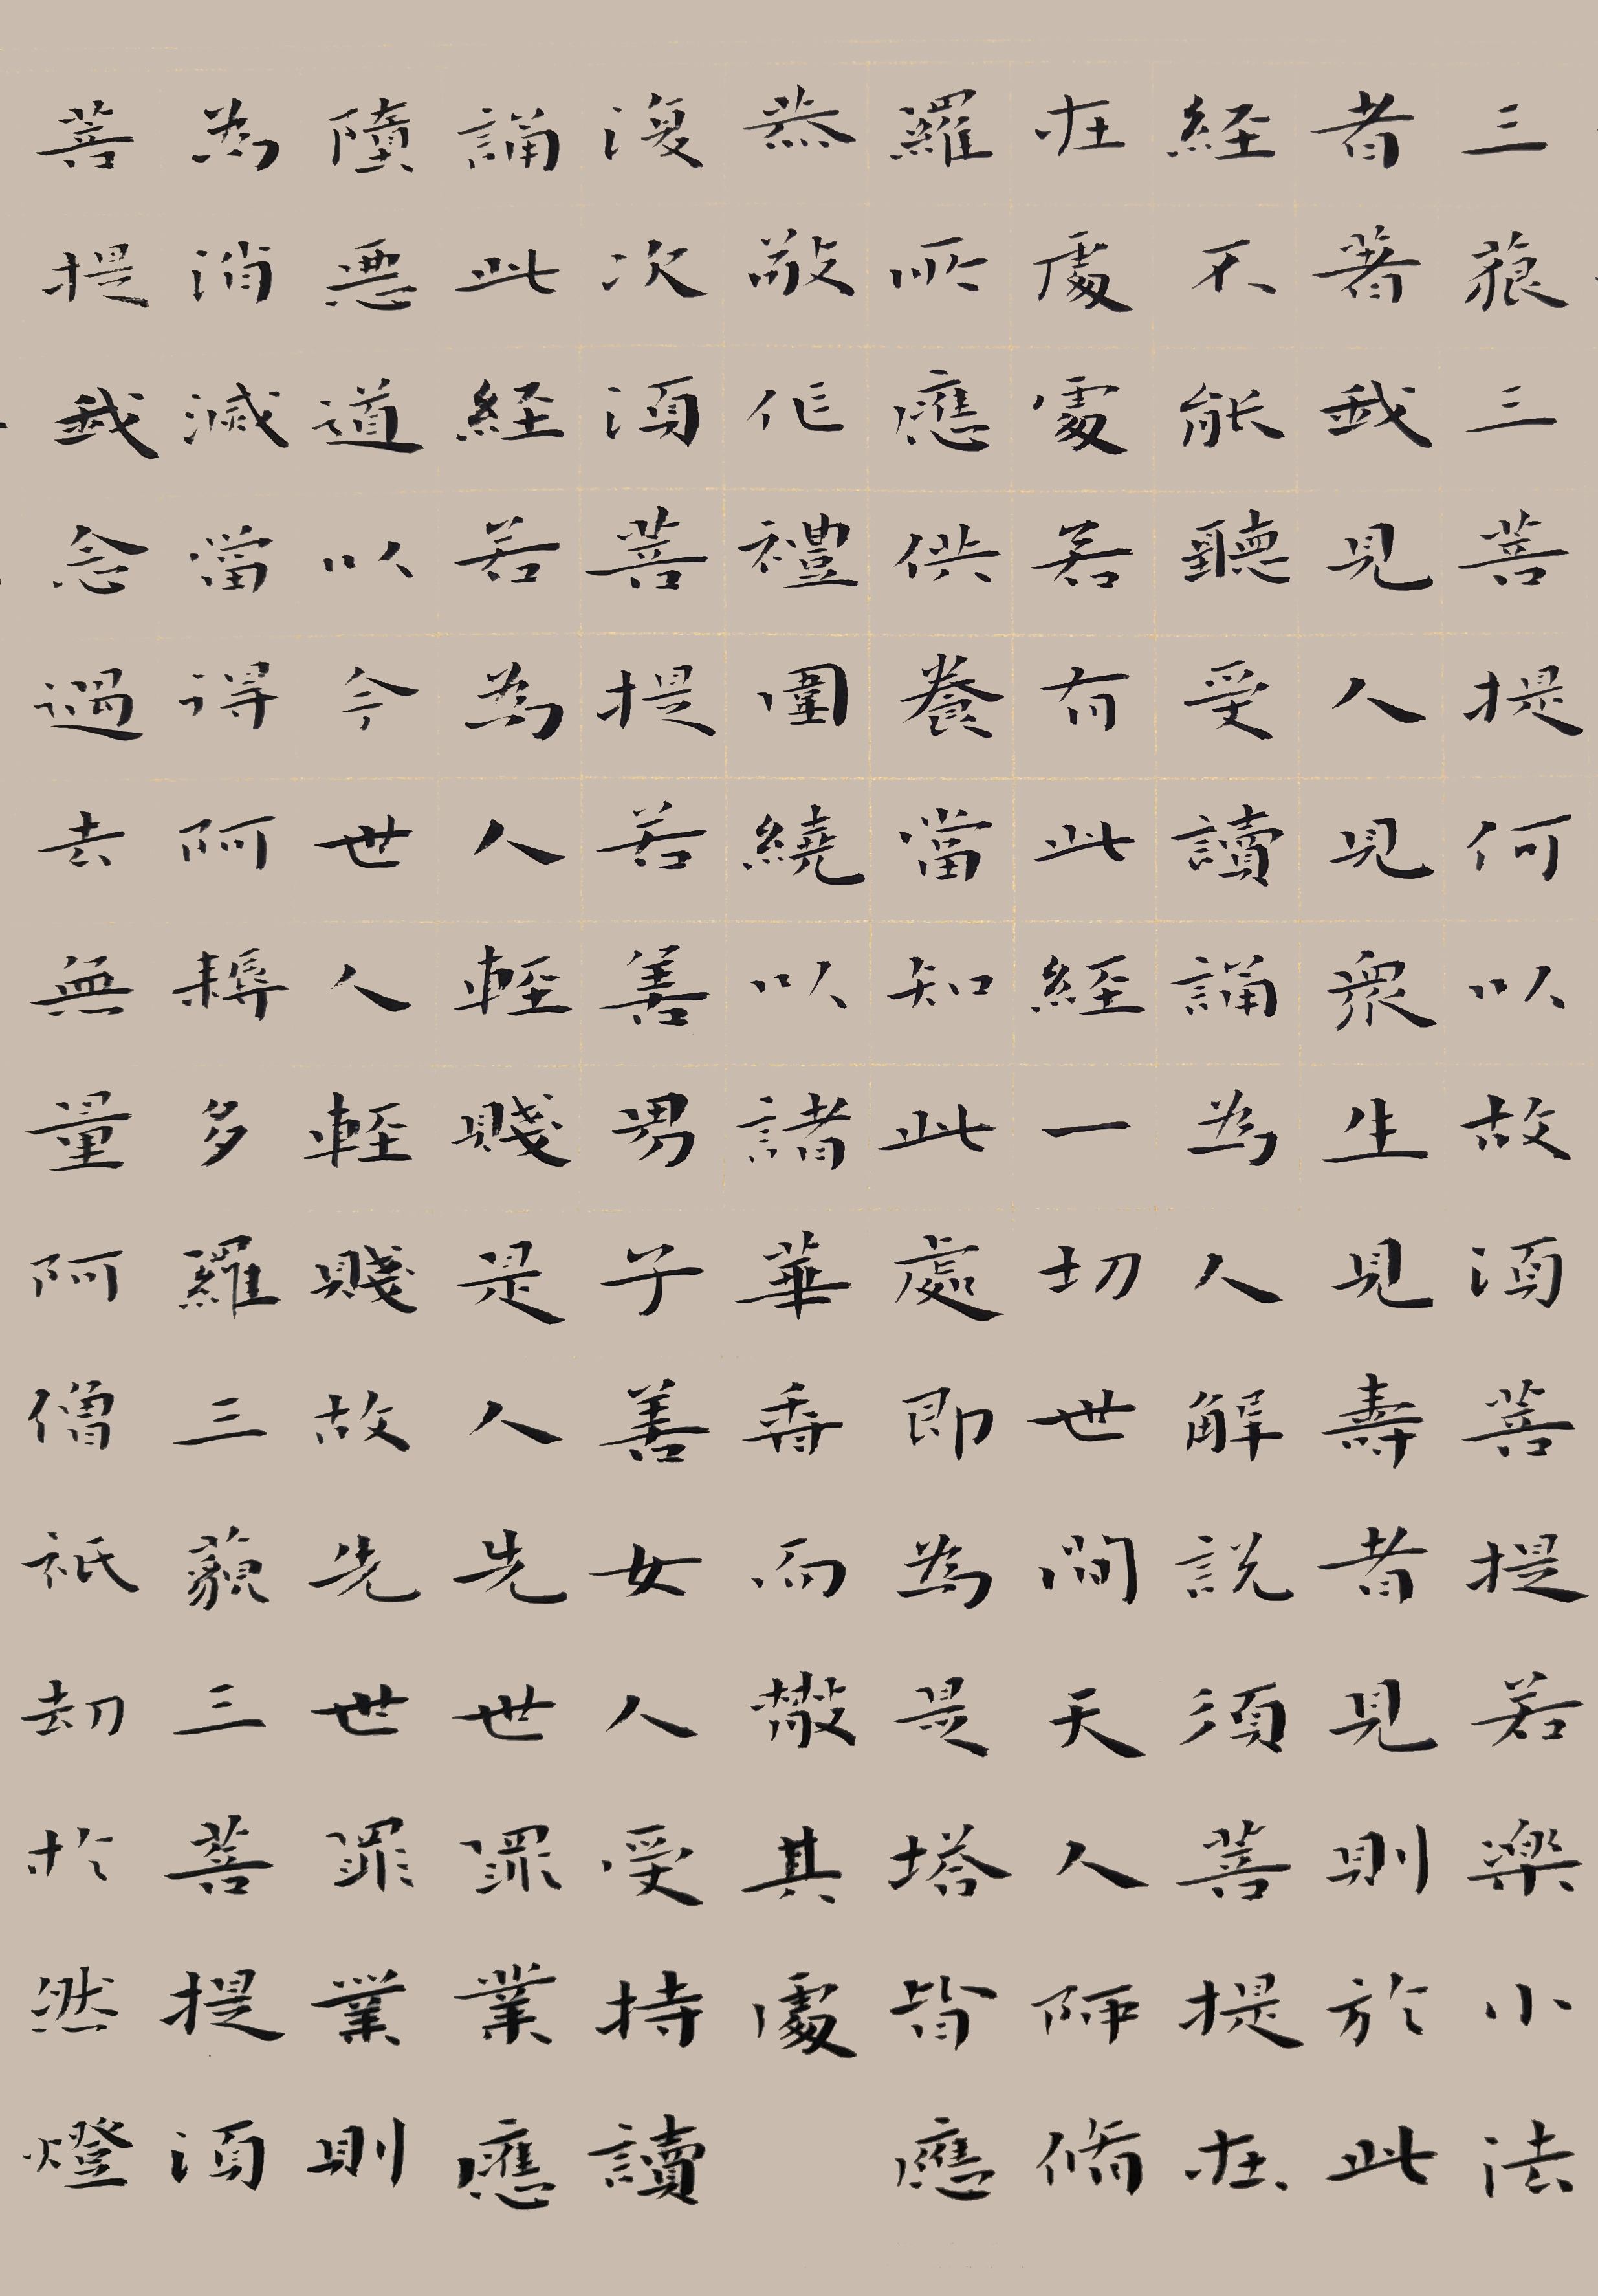 三藐三菩提何以故須菩提若樂小法
者著我見人見眾生見壽者見則於此
経不能聽受讀誦為人解說須菩提在在
處處若有此經一切世間天人阿修
羅所應供養當知此處即為是塔皆應
恭敬作禮圍繞以諸華香而散其處
復次須菩提若善男子善女人受持讀
誦此經若為人輕賤是人先世罪業應
墮惡道以今世人輕賤故先世罪業則
為消滅當得阿耨多羅三藐三菩提須
菩提我念過去無量阿僧祇劫於然燈